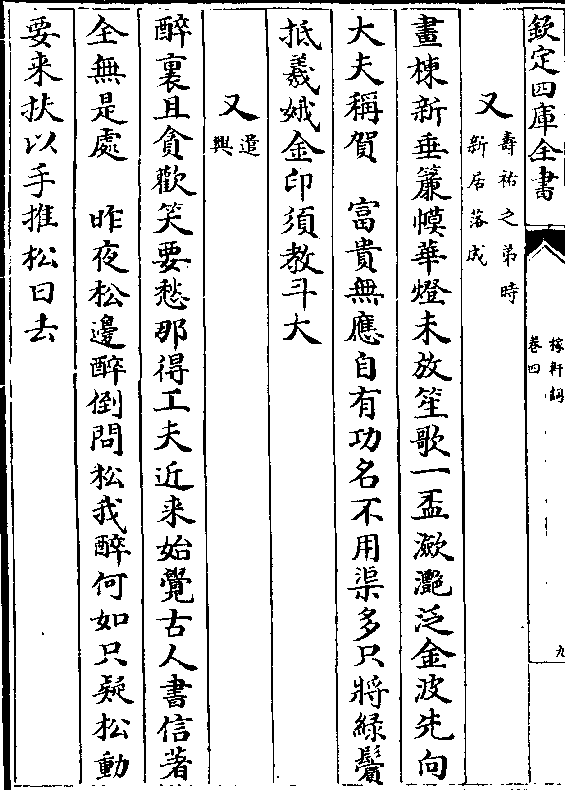 欽定四庫全書
稼軒詞
卷四
九
又
壽祐之弟時
新居落成
畫棟新垂簾幙華燈未放笙歌一盃瀲灧泛金波先向
大夫稱賀　富貴無應自有功名不用渠多只將綠鬢
抵羲娥金印須教斗大
又
遣
興
醉裏且貪歡笑要愁那得工夫近来始覺古人書信著
全無是處　昨夜松邊醉倒問松我醉何如只疑松動
要来扶以手推松曰去